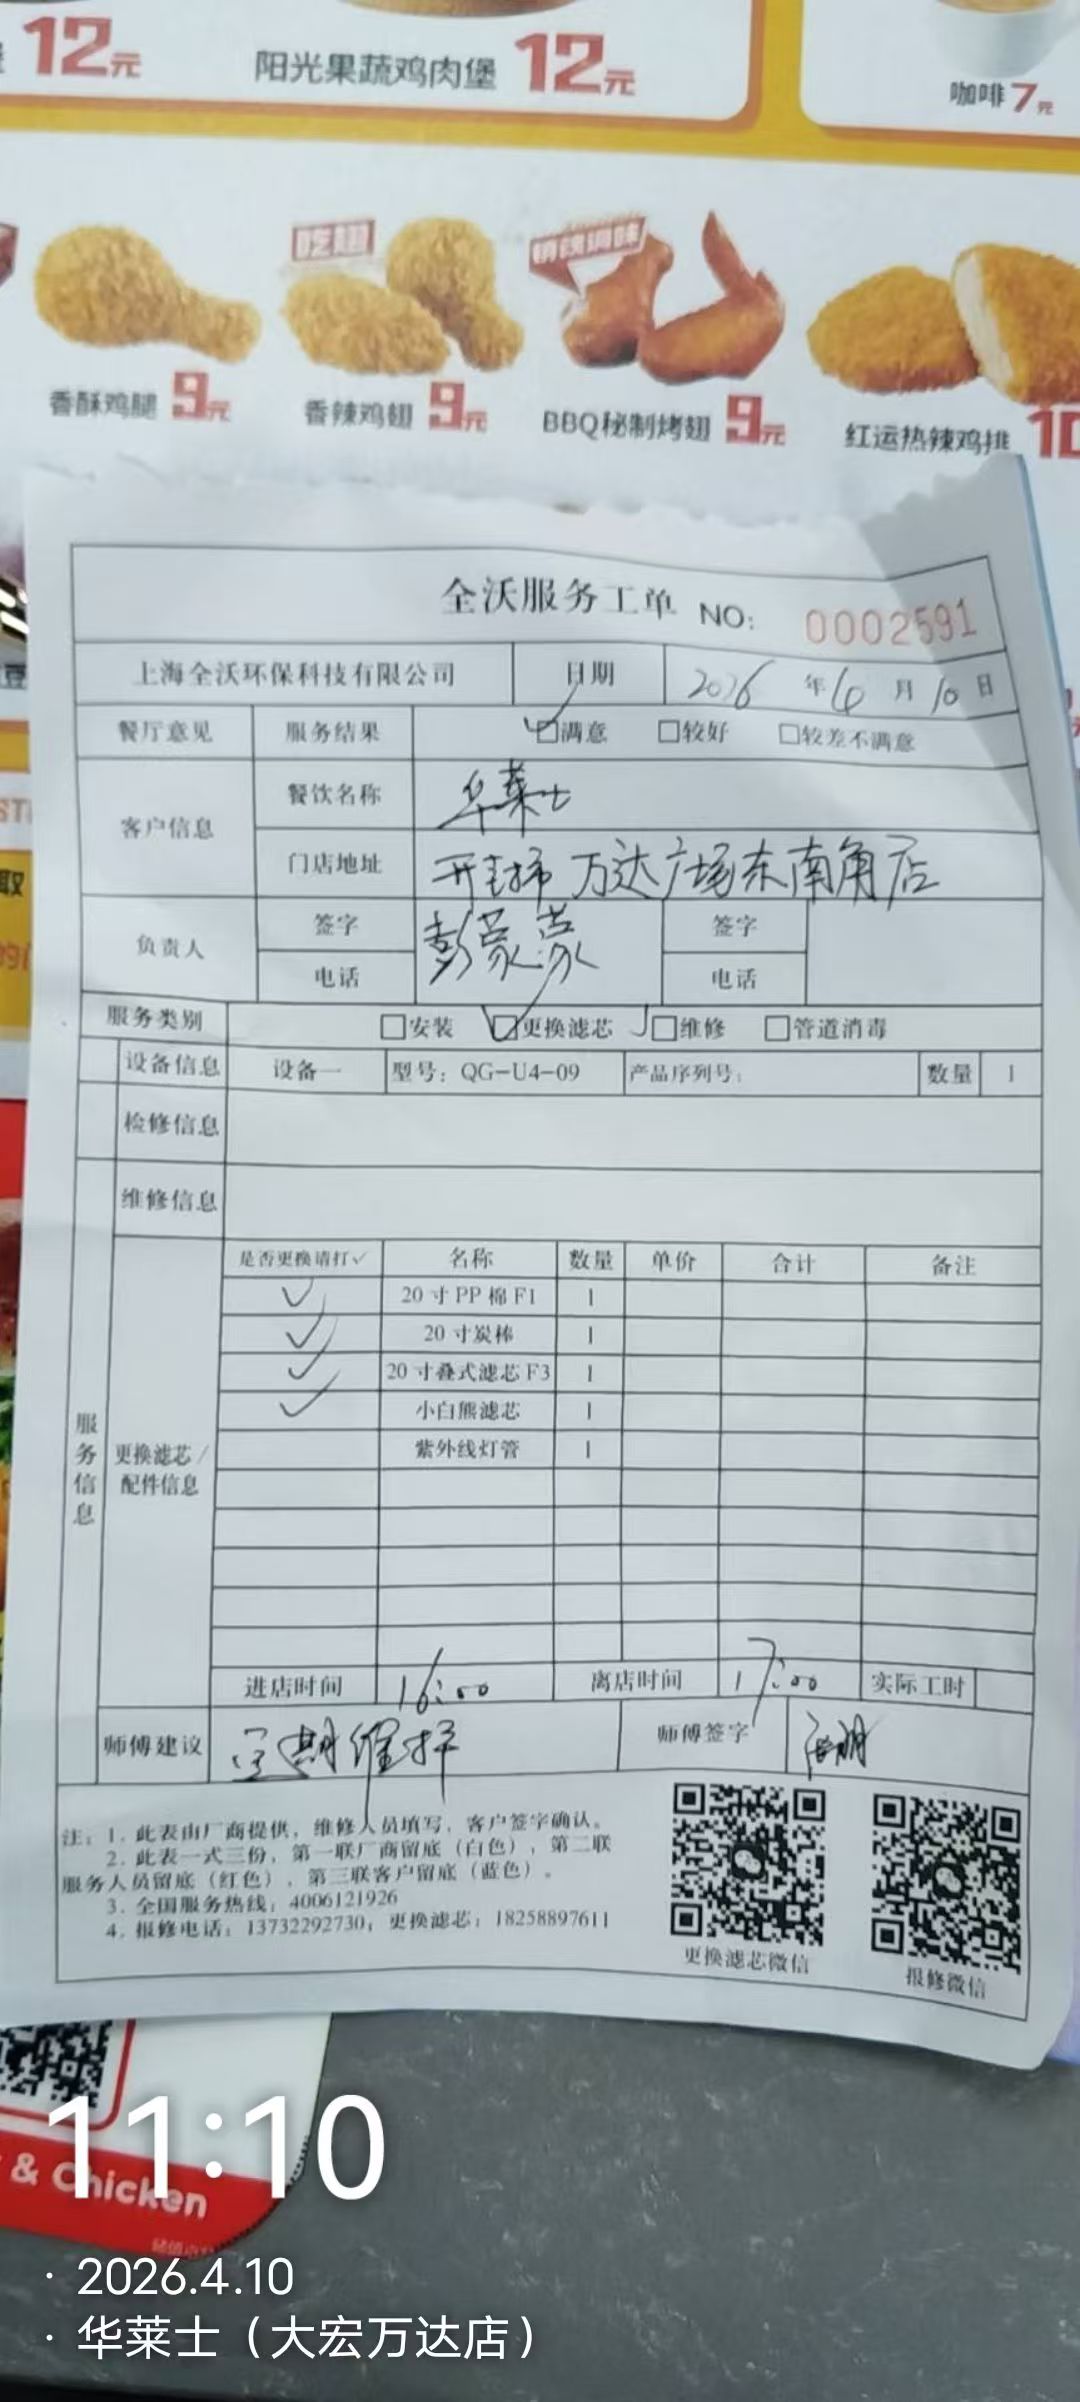 12元
阳光果蔬鸡肉堡 12元
咖啡 7元
吃翅
香酥鸡腿 9元
香辣鸡翅 9元
BBQ秘制烤翅 9元
红运热辣鸡排 10
全沃服务工单 NO: 0002591
上海全沃环保科技有限公司 日期 2026 年 4 月 10 日
餐厅意见 服务结果 ☑满意 □较好 □较差不满意
客户信息 餐饮名称 华莱士
门店地址 开封市万达广场东南角店
负责人 签字 彭蒙蒙 签字
电话 电话
服务类别 □安装 ☑更换滤芯 ✓□维修 □管道消毒
设备信息 设备一 型号: QG-U4-09 产品序列号: 数量 1
检修信息
维修信息
是否更换请打✓ 名称 数量 单价 合计 备注
✓ 20寸PP棉F1 1
✓ 20寸炭棒 1
✓ 20寸叠式滤芯F3 1
✓ 小白熊滤芯 1
紫外线灯管 1
服务信息
更换滤芯/
配件信息
进店时间 16:00 离店时间 17:00 实际工时
师傅建议 定期维护 师傅签字
注: 1. 此表由厂商提供, 维修人员填写, 客户签字确认。
2. 此表一式三份, 第一联厂商留底(白色), 第二联
服务人员留底(红色), 第三联客户留底(蓝色)。
3. 全国服务热线: 4006121926
4. 报修电话: 13732292730; 更换滤芯: 18258897611
更换滤芯微信
报修微信
& Chicken
11:10
· 2026.4.10
· 华莱士（大宏万达店）